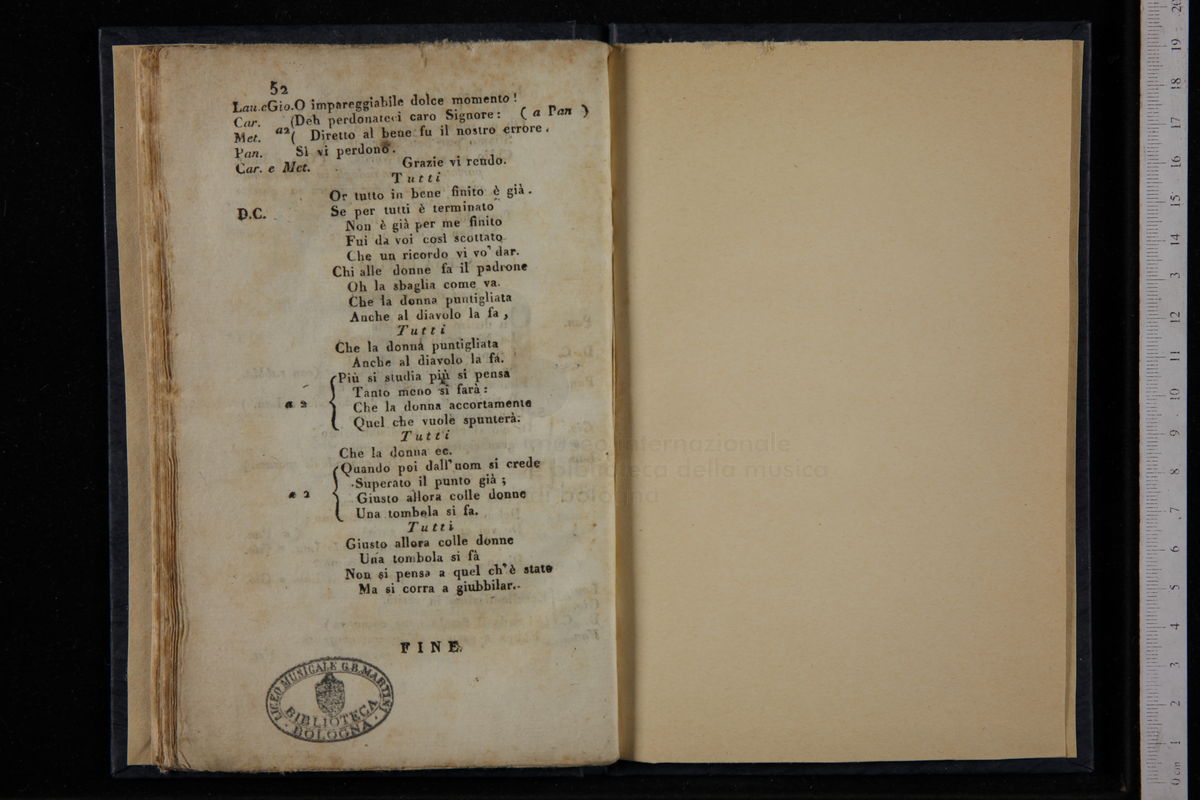 52
Lau.eGio.O impareggiabile dolce momento!
Car. (Deh perdonateci caro Signore: ( a Pan )
Met. a2 ( Diretto al bene fu il nostro errore.
Pan. Sì vi perdono.
Car. e Met. Grazie vi rendo.
Tutti
Or tutto in bene finito è già.
D.C. Se per tutti è terminato
Non è già per me finito
Fui da voi così scottato
Che un ricordo vi vo' dar.
Chi alle donne fa il padrone
Oh la sbaglia come va.
Che la donna puntigliata
Anche al diavolo la fa,
Tutti
Che la donna puntigliata
Anche al diavolo la fa.
Più si studia più si pensa
Tanto meno si farà:
a 2 Che la donna accortamente
Quel che vuole spunterà.
Tutti
Che la donna ec.
Quando poi dall'uom si crede
Superato il punto già;
a 2 Giusto allora colle donne
Una tombola si fa.
Tutti
Giusto allora colle donne
Una tombola si fà
Non si pensa a quel ch'è stato
Ma si corra a giubbilar.
FINE.
LICEO MUSICALE G.B. MARTINI
BIBLIOTECA
BOLOGNA
museo internazionale
e biblioteca della musica
di bologna
0 cm 1 2 3 4 5 6 7 8 9 10 11 12 13 14 15 16 17 18 19 20